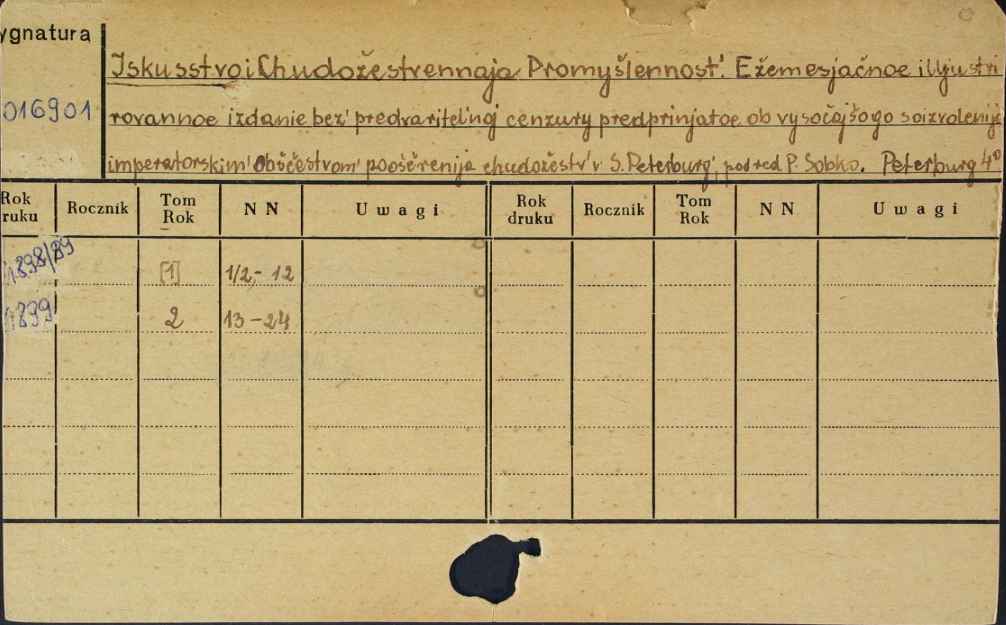 ygnatura
016901
Iskusstvo i Chudožestrennaja Promyšlennost'. Ežemesjačnoe illjustri
rovannoe izdanie bez' predvaritel'noj cenzury predprinjatoe ob vysočajšogo soizvolenija
imperatorskim' obščestvom' pooščrenija chudožestv' v S. Peterburg', pod red P. Sobko. Peterburg 4°
Rok ruku Rocznik Tom Rok N N Uwagi Rok druku Rocznik Tom Rok N N Uwagi
1898/89 [1] 1/2,- 12
1899 2 13-24